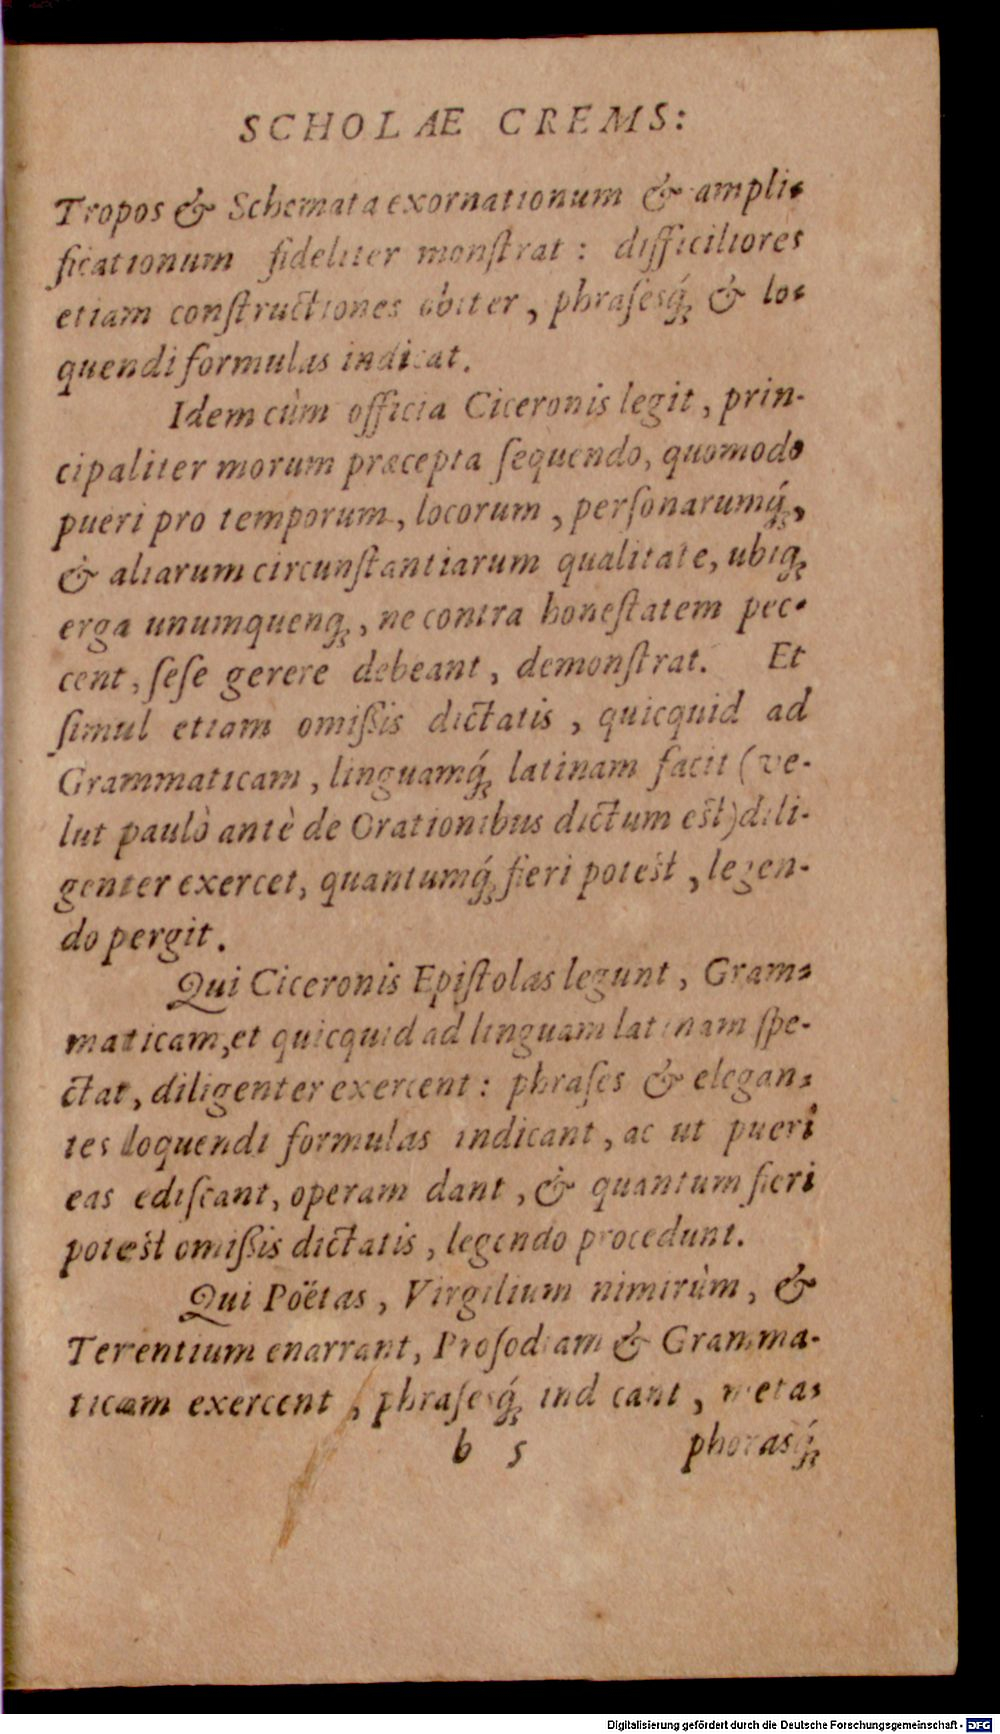 SCHOLÆ CREMS:
Tropos & Schemata exornationum & ampli-
ficationum fideliter monſtrat : difficiliores
etiam conſtructiones obiter, phraſesq́; & lo-
quendi formulas indicat.
Idem cùm officia Ciceronis legit, prin-
cipaliter morum præcepta ſequendo, quomodo
pueri pro temporum, locorum, perſonarumq́;,
& aliarum circunſtantiarum qualitate, ubiq;
erga unumquenq;, ne contra honeſtatem pec-
cent, ſeſe gerere debeant, demonſtrat. Et
ſimul etiam omißis dictatis, quicquid ad
Grammaticam, linguamq́; latinam facit (ve-
lut paulò antè de Orationibus dictum eſt) dili-
genter exercet, quantumq́; fieri poteſt, legen-
do pergit.
Qui Ciceronis Epiſtolas legunt, Gram-
maticam, et quicquid ad linguam latinam ſpe-
ctat, diligenter exercent: phraſes & elegan-
tes loquendi formulas indicant, ac ut pueri
eas ediſcant, operam dant, & quantum fieri
poteſt omißis dictatis, legendo procedunt.
Qui Poëtas, Virgilium nimirùm, &
Terentium enarrant, Proſodiam & Gramma-
ticam exercent, phraſesq́; indicant, meta-
b 5 phorasq́;
Digitalisierung gefördert durch die Deutsche Forschungsgemeinschaft - DFG